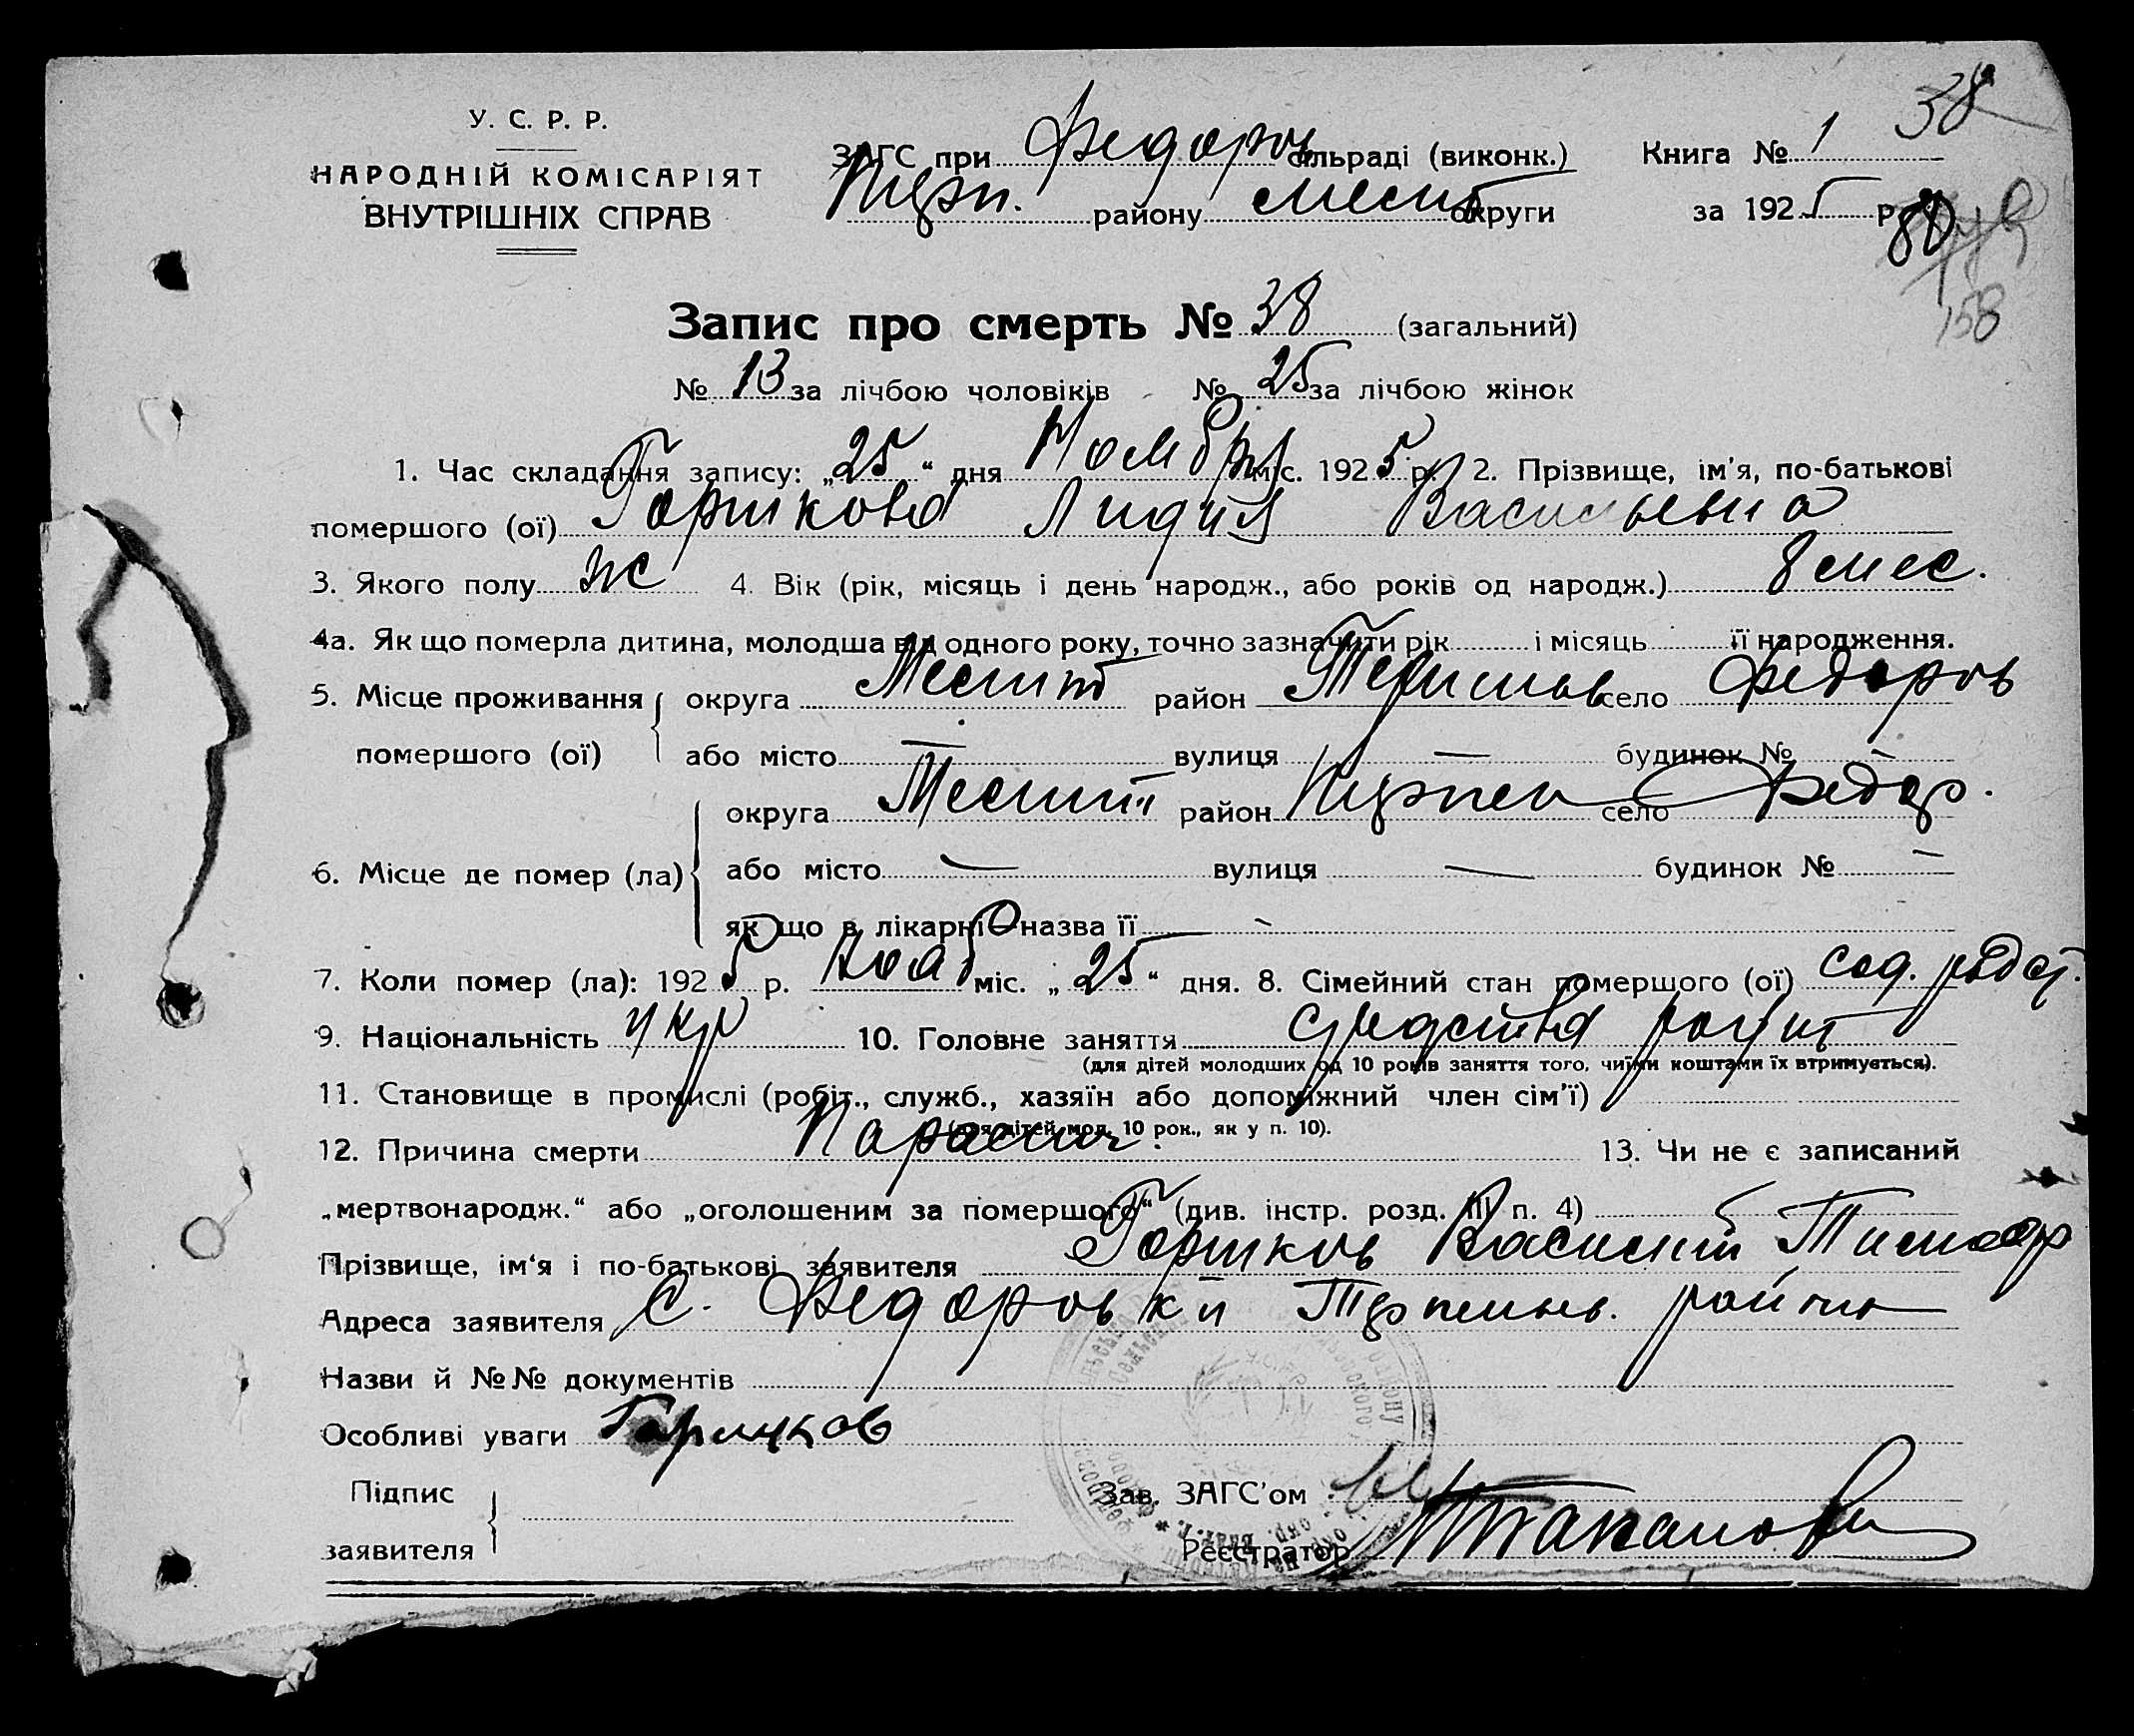 У. С. Р. Р.
НАРОДНІЙ КОМІСАРІЯТ
ВНУТРІШНІХ СПРАВ
ЗАГС при Федоров сільраді (виконк.)
Терп. району Мелит округи
Книга № 1
за 1925 р.
38
80
158
Запис про смерть № 38 (загальний)
№ 13 за лічбою чоловіків № 25 за лічбою жінок
1. Час складання запису: „25“ дня Ноября міс. 1925 р. 2. Прізвище, ім'я, по-батькові
помершого (ої) Горшкова Лидия Васильевна
3. Якого полу ж 4. Вік (рік, місяць і день народж., або років од народж.) 8 мес.
4а. Як що померла дитина, молодша від одного року, точно зазначити рік і місяць її народження.
5. Місце проживання округа Мелит район село Федоров
помершого (ої) або місто — вулиця — будинок № —
округа Мелит район Терпен село Федор.
6. Місце де помер (ла) або місто — вулиця — будинок № —
як що в лікарні назва її —
7. Коли помер (ла): 1925 р. міс. „25“ дня. 8. Сімейний стан помершого (ої)
9. Національність укр 10. Головне заняття средства
(для дітей молодших од 10 років заняття того, чиїми коштами їх втримується).
11. Становище в промислі (робіт., служб., хазяїн або допоміжний член сім'ї)
(для дітей мол. 10 рок., як у п. 10).
12. Причина смерти 13. Чи не є записаний
„мертвонародж.“ або „оголошеним за помершого“ (див. інстр. розд. III п. 4)
Прізвище, ім'я і по-батькові заявителя Горшков Василий
Адреса заявителя с. Федоровки Терпеньев. района
Назви й №№ документів
Особливі уваги Горшков
Підпис
заявителя
Зав. ЗАГС'ом
Реєстратор